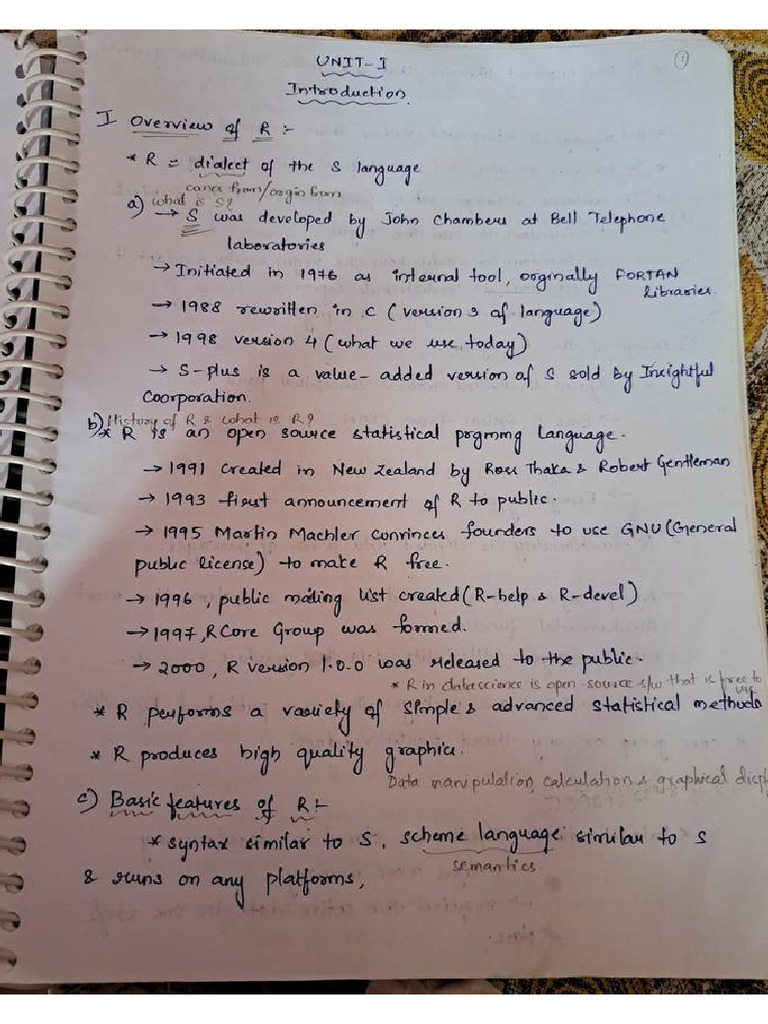 1
UNIT-I
Introduction
I Overview of R :-
* R = dialect of the S language
comes from/orgin from
a) What is S?
→ S was developed by John Chambers at Bell Telephone
laboratories
→ Initiated in 1976 as internal tool, orginally FORTAN
Libraries.
→ 1988 rewritten in C (version 3 of language)
→ 1998 version 4 (what we use today)
→ S-plus is a value-added version of S sold by Insightful
Coorporation.
b) History of R & what is R?
* R is an open source statistical prgmmg language.
→ 1991 created in New Zealand by Ross Ihaka & Robert Gentleman
→ 1993 first announcement of R to public.
→ 1995 Martin Machler convinces founders to use GNU (General
public license) to make R free.
→ 1996, public mailing list created (R-help & R-devel)
→ 1997, R Core Group was formed.
→ 2000, R version 1.0.0 was released to the public.
* R in datascience is open-source s/w that is free to
use
* R performs a variety of simple & advanced statistical methods
* R produces high quality graphics.
Data manipulation, calculation & graphical disp
c) Basic features of R :-
* syntax similar to S, scheme language similar to S
semantics
& runs on any platforms,